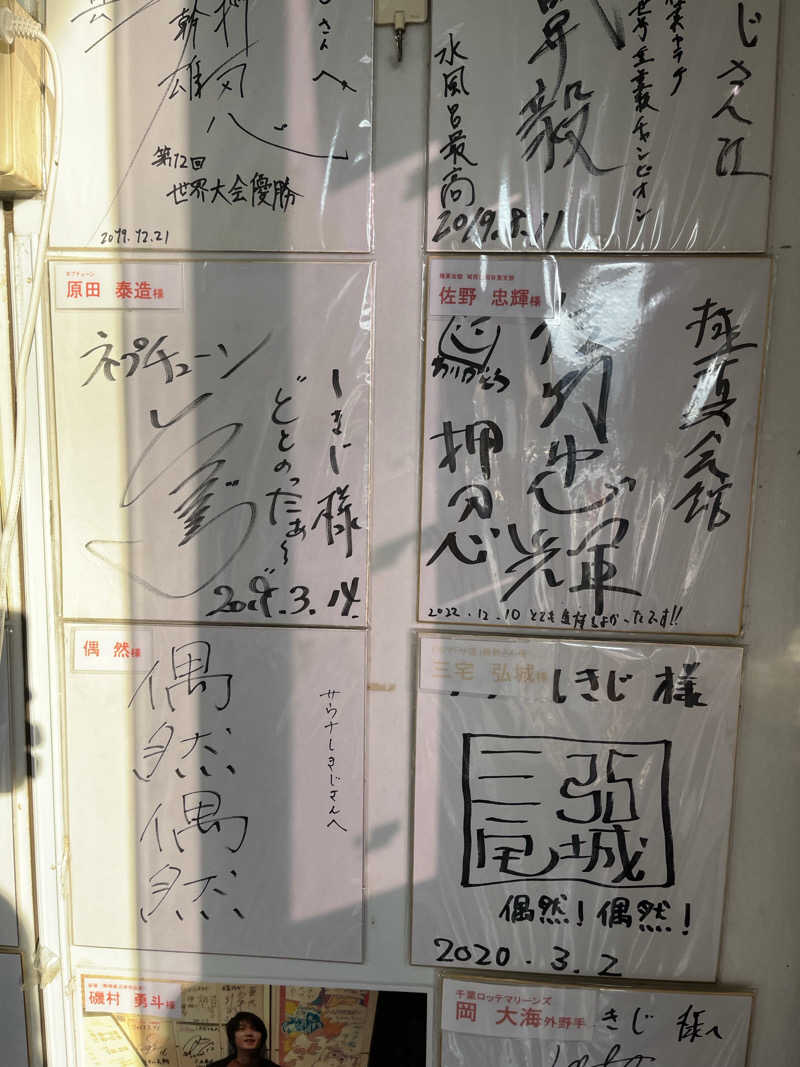 さんへ
幹雄
押忍
第12回
世界大会優勝
2019.12.21
じさん江
世界重量級チャンピオン
毅
水風呂最高
2019.8.11
ネプチューン
原田 泰造様
ネプチューン
しきじ様
ととのったぁ〜
2019.3.14
佐野 忠輝様
極真会館
佐野忠輝
ありがとう
押忍
2022.12.10 とても気持ちよかったです!!
偶 然様
サウナしきじさんへ
偶然
偶然
三宅 弘城様
しきじ様
三宅
弘城
偶然!偶然!
2020.3.2
磯村 勇斗様
千葉ロッテマリーンズ
岡 大海外野手
きじ 様へ